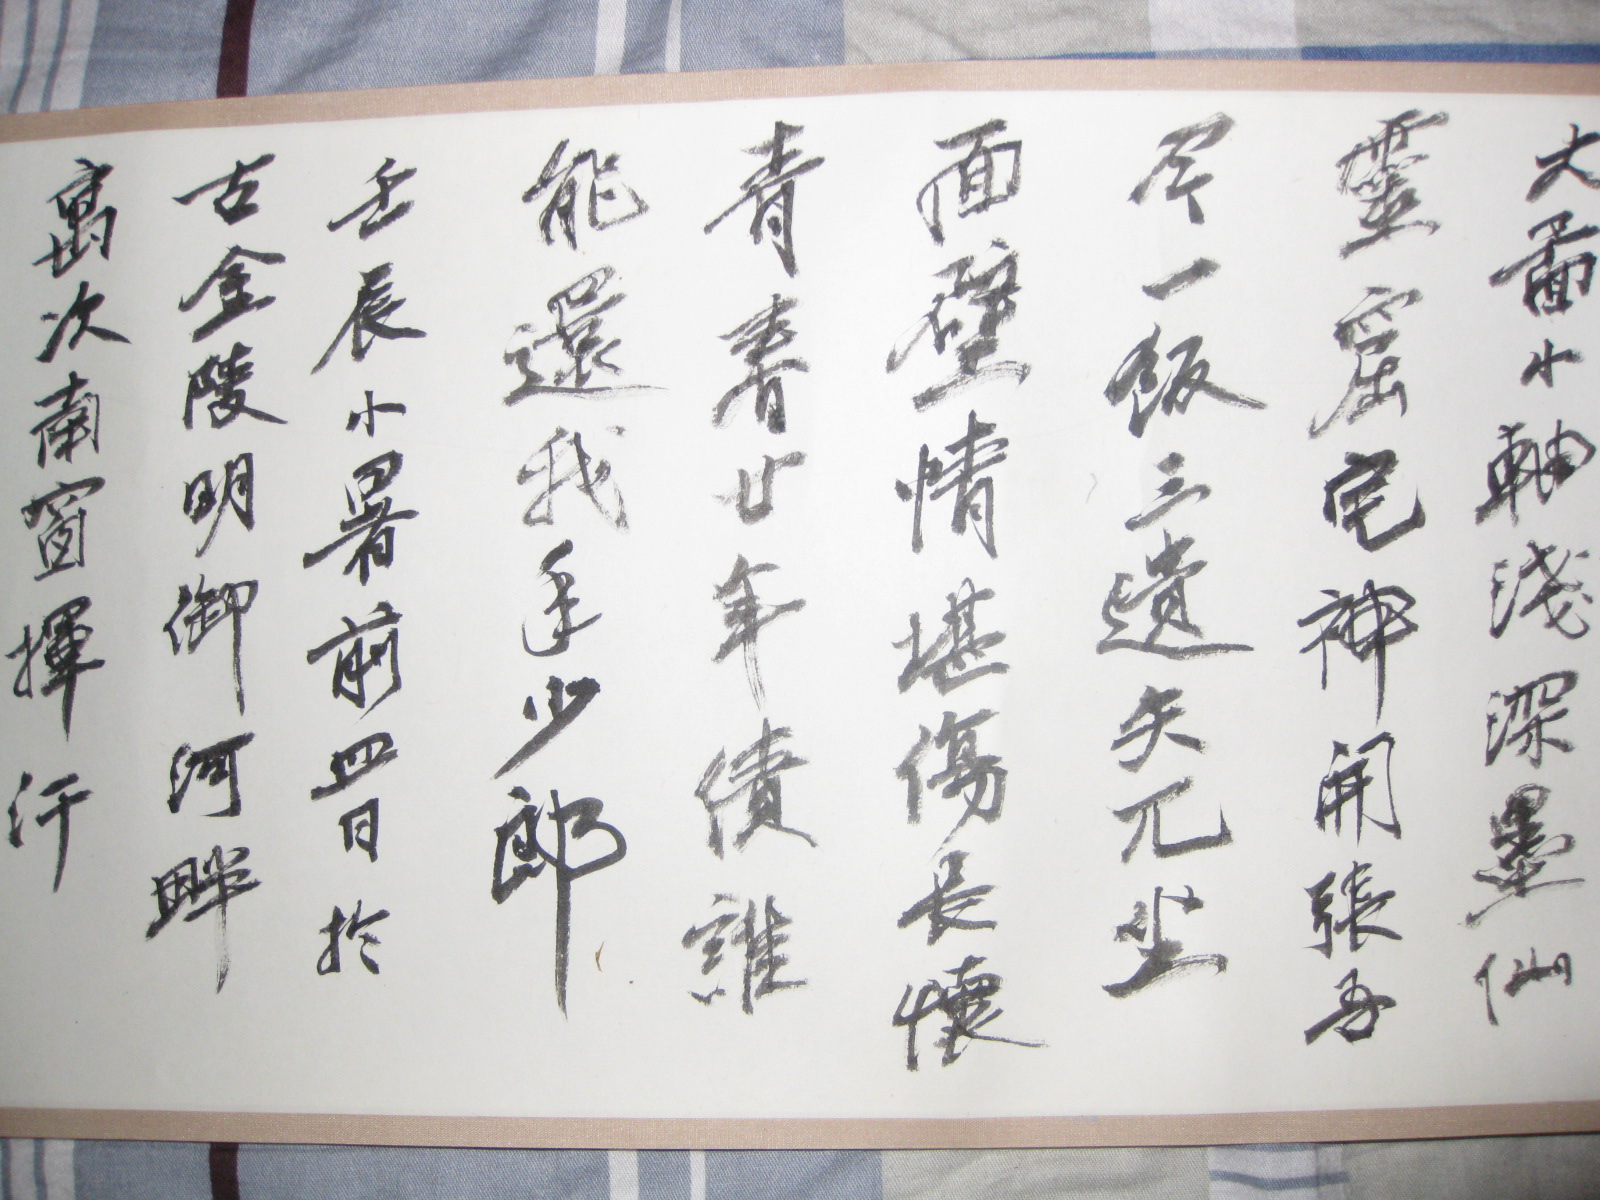 大圖小軸淺深墨仙
靈窟宅神開張吾
尺一飯三遺矢兀坐
面壁情堪傷長懷
青青廿年債誰
能還我年少郎
壬辰小暑前四日於
古金陵明御河畔
萬次南窗揮汗